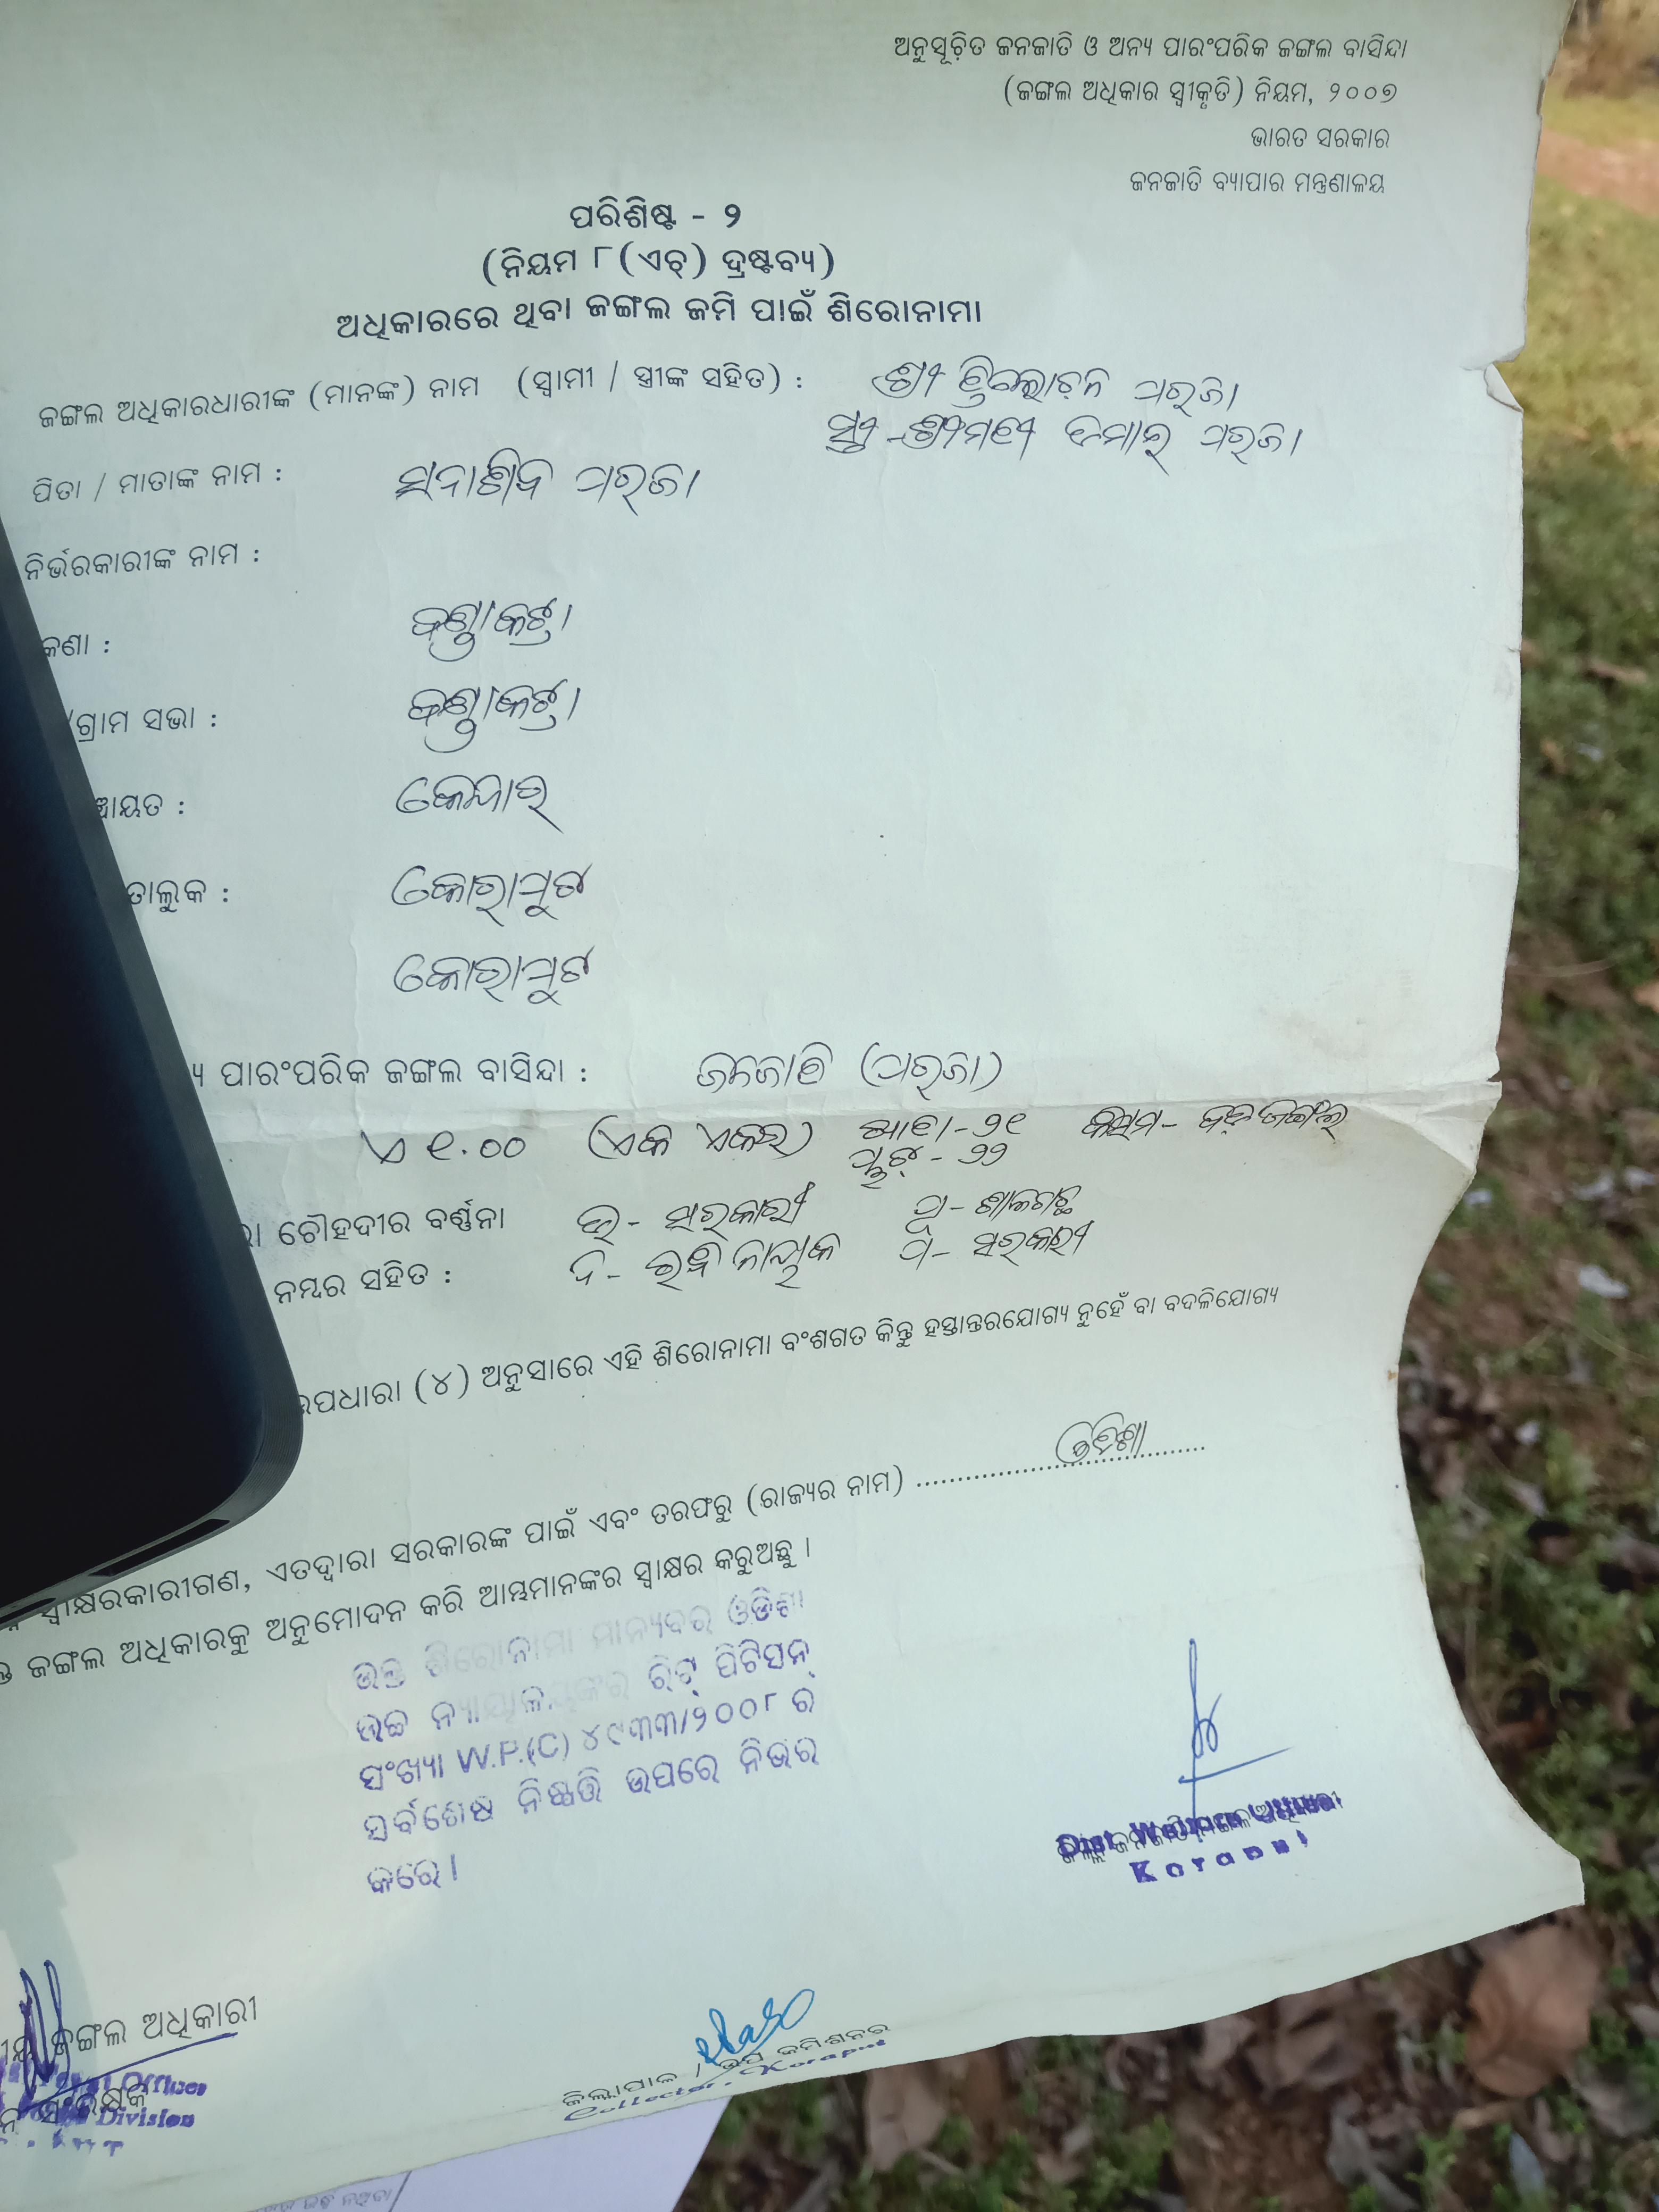 ଅନୁସୂଚିତ ଜନଜାତି ଓ ଅନ୍ୟ ପାରଂପରିକ ଜଙ୍ଗଲ ବାସିନ୍ଦା
(ଜଙ୍ଗଲ ଅଧିକାର ସ୍ୱୀକୃତି) ନିୟମ, ୨୦୦୭
ଭାରତ ସରକାର
ଜନଜାତି ବ୍ୟାପାର ମନ୍ତ୍ରଣାଳୟ
ପରିଶିଷ୍ଟ - ୨
(ନିୟମ ୮(ଏଚ୍) ଦ୍ରଷ୍ଟବ୍ୟ)
ଅଧିକାରରେ ଥିବା ଜଙ୍ଗଲ ଜମି ପାଇଁ ଶିରୋନାମା
ଜଙ୍ଗଲ ଅଧିକାରଧାରୀଙ୍କ (ମାନଙ୍କ) ନାମ (ସ୍ୱାମୀ / ସ୍ତ୍ରୀଙ୍କ ସହିତ) : ଶ୍ରୀ ତ୍ରିଲୋଚନ ପରଜା
ସ୍ତ୍ରୀ - ଶ୍ରୀମତୀ ପରଜା
ପିତା / ମାତାଙ୍କ ନାମ : ପରଜା
ନିର୍ଭରକାରୀଙ୍କ ନାମ :
କଣା :
/ଗ୍ରାମ ସଭା :
ଞ୍ଚାୟତ : କେନ୍ଦାର
ତାଲୁକ : କୋରାପୁଟ
କୋରାପୁଟ
ୟ ପାରଂପରିକ ଜଙ୍ଗଲ ବାସିନ୍ଦା : ଜନଜାତି (ପରଜା)
ଏ ୧.୦୦ (ଏକ ଏକର) ଖାତା-୨୧ କିସମ- ବଡ଼ ଜଙ୍ଗଲ
ପ୍ଲଟ୍ - ୨୨
ରା ଚୌହଦୀର ବର୍ଣ୍ଣନା ଉ - ସରକାରୀ ପୂ - ଶାଳଗଛ
ନମ୍ବର ସହିତ : ଦ - ରବି ନାୟକ ପ - ସରକାରୀ
ଉପଧାରା (୪) ଅନୁସାରେ ଏହି ଶିରୋନାମା ବଂଶଗତ କିନ୍ତୁ ହସ୍ତାନ୍ତରଯୋଗ୍ୟ ନୁହେଁ ବା ବଦଳିଯୋଗ୍ୟ
ସ୍ୱାକ୍ଷରକାରୀଗଣ, ଏତଦ୍ୱାରା ସରକାରଙ୍କ ପାଇଁ ଏବଂ ତରଫରୁ (ରାଜ୍ୟର ନାମ) .......... ଓଡିଶା
ଜଙ୍ଗଲ ଅଧିକାରକୁ ଅନୁମୋଦନ କରି ଆମ୍ଭମାନଙ୍କର ସ୍ୱାକ୍ଷର କରୁଅଛୁ ।
ଉକ୍ତ ଶିରୋନାମା ମାନ୍ୟବର ଓଡିଶା
ଉଚ୍ଚ ନ୍ୟାୟାଳୟଙ୍କର ରିଟ୍ ପିଟିସନ୍
ସଂଖ୍ୟା W.P.(C) ୪୯୩୩/୨୦୦୮ ର
ସର୍ବଶେଷ ନିଷ୍ପତ୍ତି ଉପରେ ନିର୍ଭର
କରେ ।
ଜିଲ୍ଲା ଜନଜାତି ମଙ୍ଗଳ ଅଧିକାରୀ
Dist Welfare Officer
Koraput
ୀୟ ଜଙ୍ଗଲ ଅଧିକାରୀ
ସଂରକ୍ଷକ
Officer
Division
ଜିଲ୍ଲାପାଳ / ଉପ କମିଶନର
Collector, Koraput